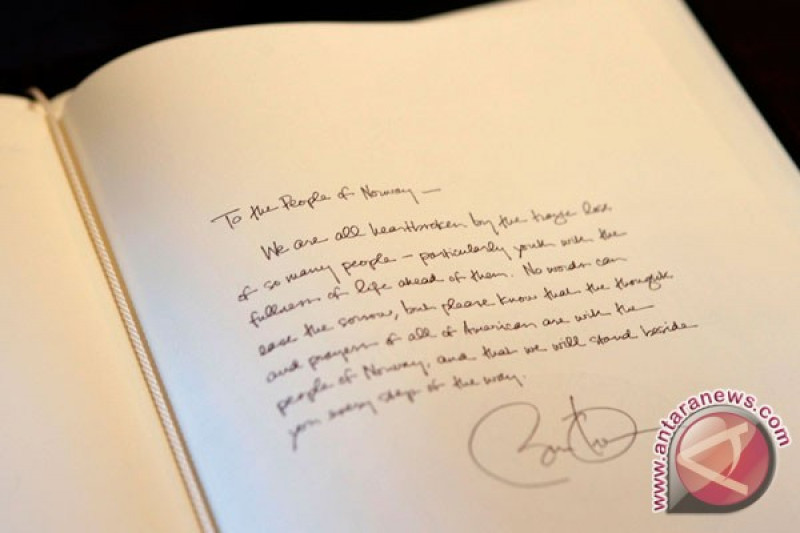 To the People of Norway —
We are all heartbroken by the tragic loss
of so many people – particularly youth with the
fullness of life ahead of them. No words can
ease the sorrow, but please know that the thoughts
and prayers of all of Americans are with the
people of Norway, and that we will stand beside
you every step of the way.
www.antaranews.com